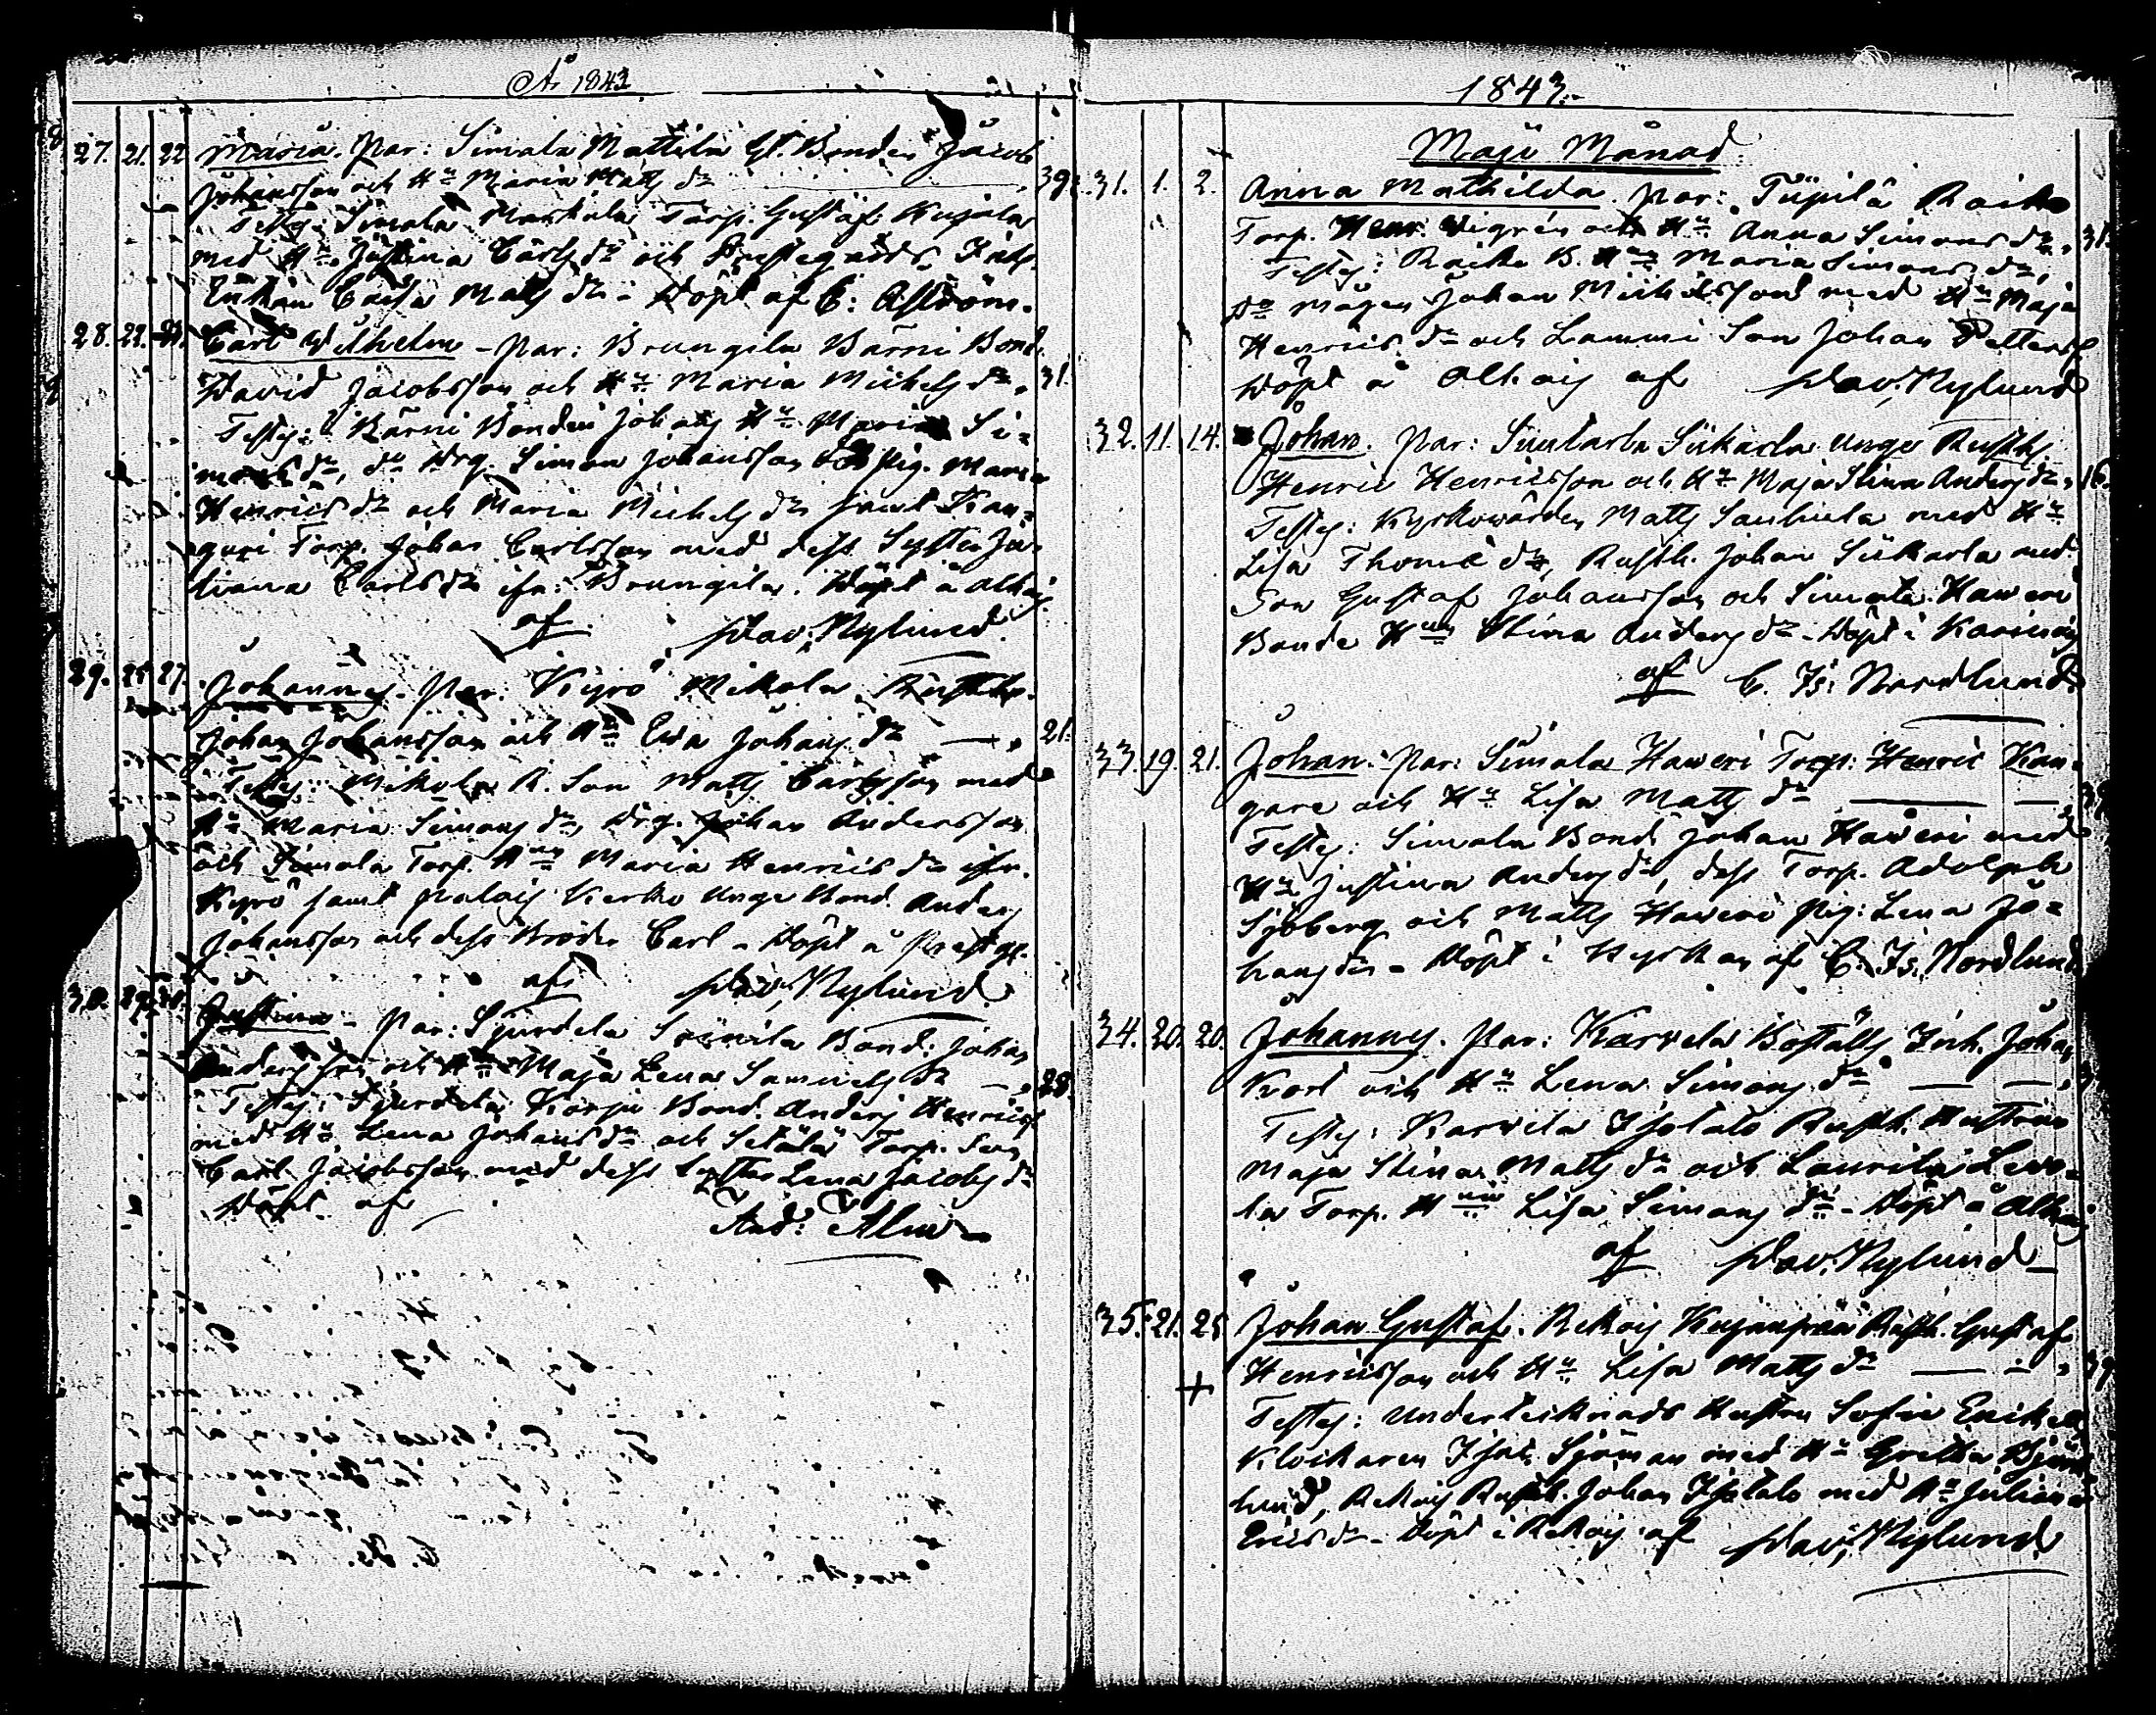 År 1843
27. 21. 22 Maria. Par: Simala Mattila Gl. Bonden Jacob
Johansson och Hu Maria Matts dr 39
Testes: Simala Markula Torp. Gustaf Kujala
med Hu Justina Carls dr och Prestegårds Inh.
Enkan Caisa Matts dr - Döpt af C: Aström.
28. 22. Carl Wilhelm - Par: Brungila Bärni Bond.
David Jacobsson och Hu Maria Michels dr, 31.
Testes: Bärni Bonden Johans Hu Maria Si-
mons dr, do Drg. Simon Johansson Pig. Maria
Henrics dr och Maria Michels dr samt Kan-
gari Torp. Johan Carlsson med dess Syster Ju-
liana Carls dr ifr. Brungila. Döpt å Alkais
af Dav. Nylund
29. 25 27. Johannes. Par: Kyrö Mikola Rusth.
Johan Johansson och Hu Ewa Johans dr 21.
Testes: Mikola R. Son Matts Carlsson med
Hu Maria Simons dr, Drg. Johan Andersson
och Simala Torp. Hun Maria Henrics dr ifr.
Kyrö samt Palais Kerko Unge Bond. Anders
Johansson och dess Broder Carl - Döpt å Prestg.
af Dav. Nylund
30. 29. 30. Justina - Par: Sjurdela Bond. Johan
Andersson och Hu Maja Lena Samuels dr 28.
Testes: Sjurdela Korpi Bond. Anders Henricss.
med Hu Lena Johans dr och Setälä Torp. Son
Carl Jacobsson med dess Syster Lena Jacobs dr
Döpt af And: Alm
1843.
Maji Månad
31. 1. 2. Anna Mathilda. Par: Tupila Raiko
Torp. Henr. Wigrén och Hu Anna Simons dr, 31.
Testes: Raiko B. Hun Maria Simons dr,
Do mågen Johan Michelsson med Hu Maja
Henrics dr och Lammi Son Johan Petterss.
Döpt å Alkais af Dav. Nylund
32. 11. 14. Johan. Par: Suutarla Siikarla unge Rusth.
Henric Henricsson och Hu Maja Stina Anders dr, 16.
Testes: Kyrkowärden Matts Sauhula med Hu
Lisa Thomæ dr, Rusth. Johan Siikarla med
Son Gustaf Johansson och Simala Haweri
Bonde Hun Stina Anders dr - Döpt i Karinais
af C. Is: Nordlund
33. 19. 21. Johan. Par: Simala Haweri Torp: Henric Kan-
gare och Hu Lisa Matts dr 39
Testes: Simala Bond. Johan Haweri med
Hu Justina Anders dr, dess Torp. Adolph
Sjöberg och Matts Haweri Pig: Lena Jo-
hans dr - Döpt i Kyrkan af C. Is. Nordlund
34. 20. 20. Johannes. Par: Karvela Boställs Inh. Johan
Kort och Hu Lena Simons dr
Testes: Karvela Isotalo Rusth. Hustrun
Maja Stina Matts dr och Laurila Lewo-
la Torp. Hun Lisa Simons dr - Döpt å Alkais
af Dav. Nylund
35. 21. 25 Johan Gustaf. Rekois Kujanpää Rusth. Gustaf
+ Henricsson och Hu Lisa Matts dr 39
Testes: Undertecknads Hustru Sofie Enckell
Klockaren Isac Sjöman med Hu Gretha Björk-
lund, Rekois Rusth. Johan Isotalo med Hu Juliana
Erics dr - Döpt i Rekois af Dav. Nylund